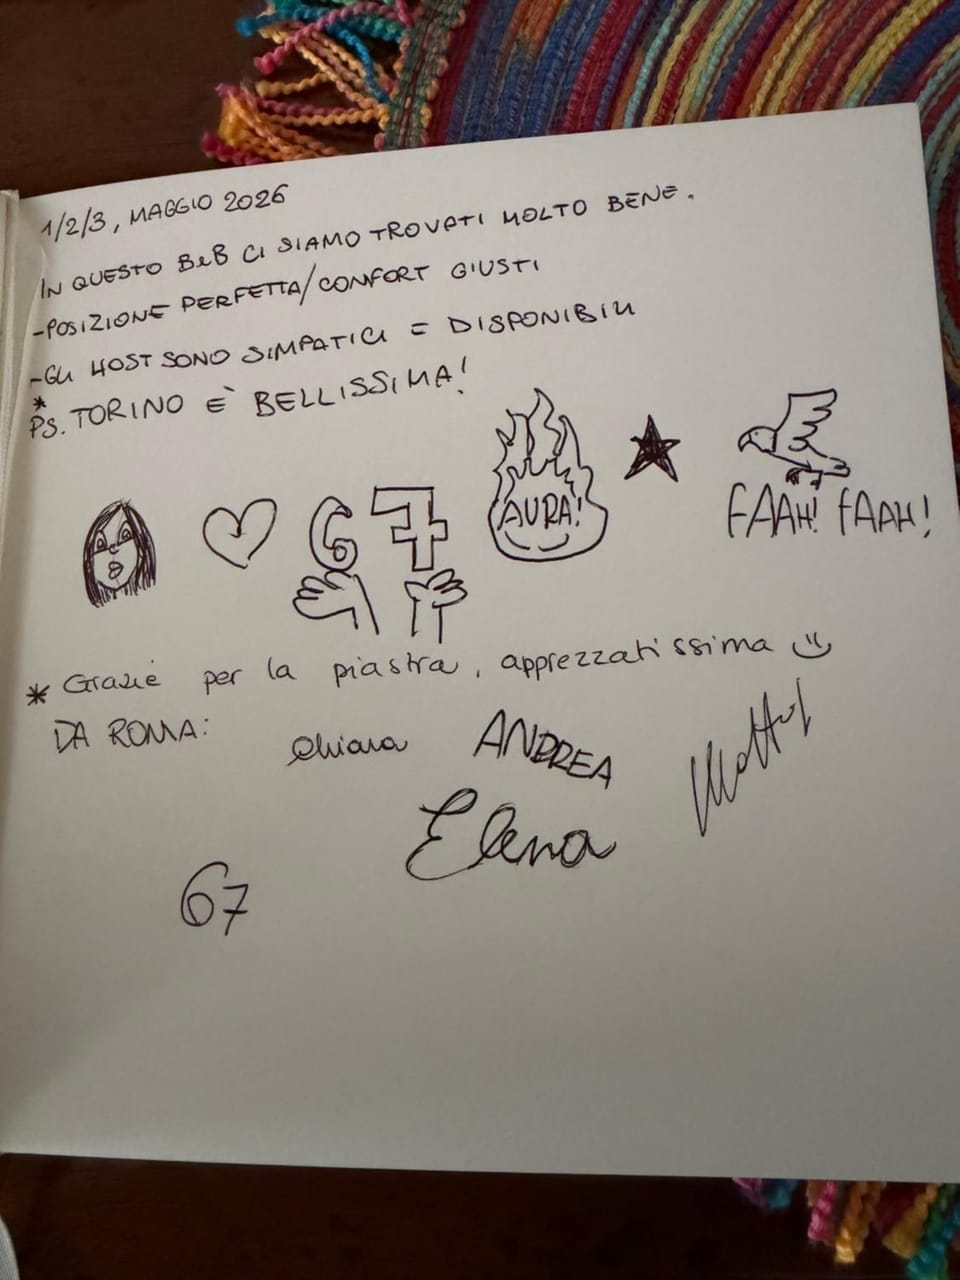 1/2/3, MAGGIO 2026
IN QUESTO B&B CI SIAMO TROVATI MOLTO BENE.
-POSIZIONE PERFETTA/CONFORT GIUSTI
-GLI HOST SONO SIMPATICI E DISPONIBILI
*
PS. TORINO È BELLISSIMA!
67
AURA!
FAAH! FAAH!
* Grazie per la piastra, apprezzatissima
DA ROMA:
Chiara ANDREA
Elena
67